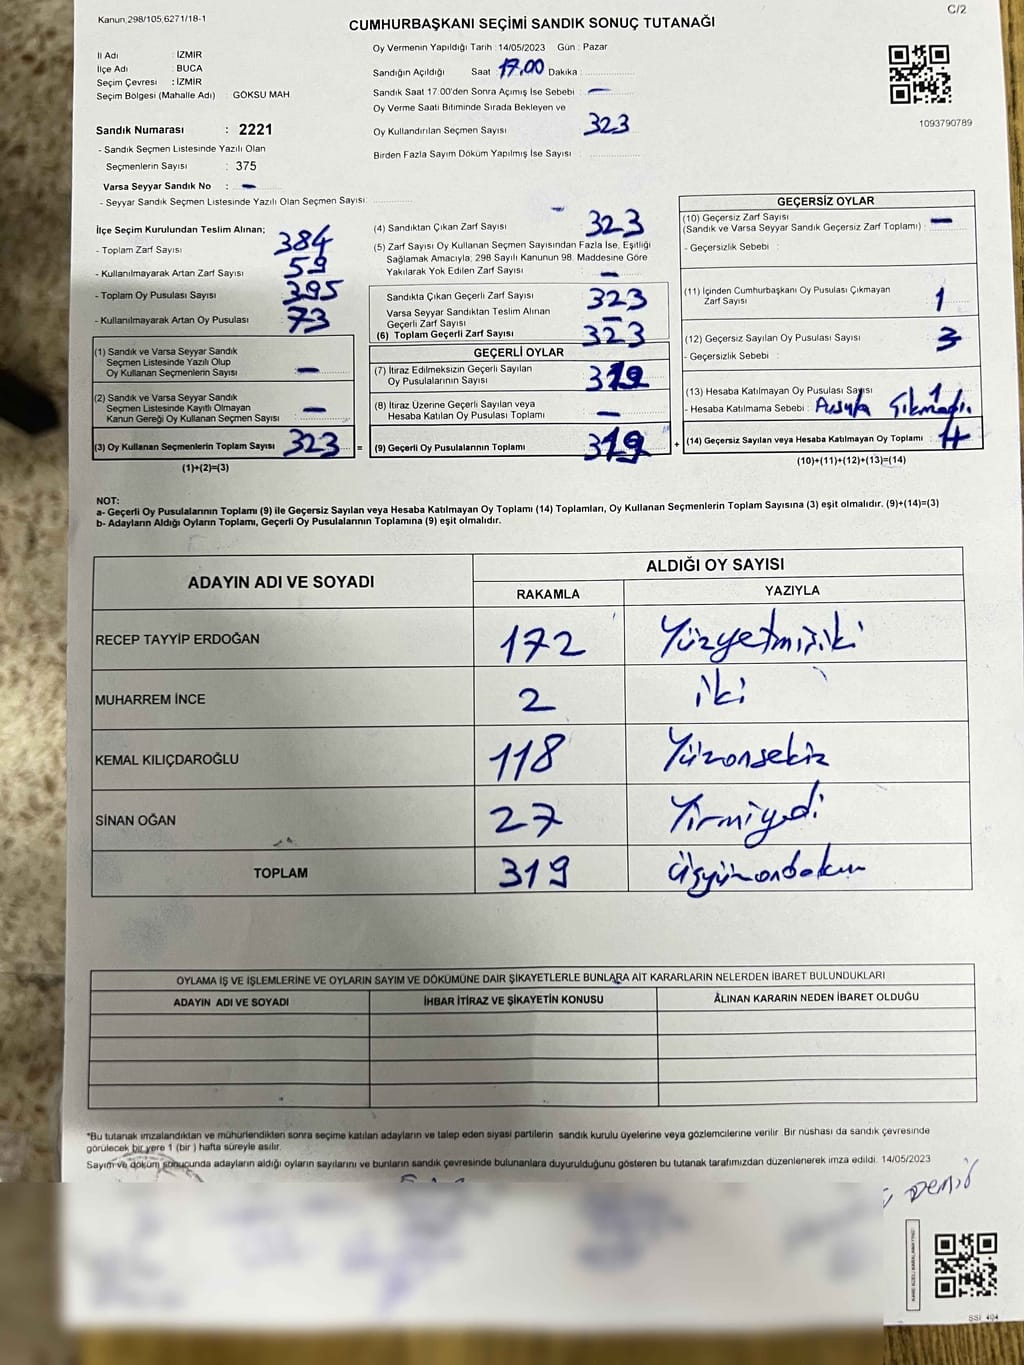 Kanun,298/105,6271/18-1
C/2
CUMHURBAŞKANI SEÇİMİ SANDIK SONUÇ TUTANAĞI
İl Adı : İZMİR
İlçe Adı : BUCA
Seçim Çevresi : İZMİR
Seçim Bölgesi (Mahalle Adı) : GÖKSU MAH.
Sandık Numarası : 2221
- Sandık Seçmen Listesinde Yazılı Olan
Seçmenlerin Sayısı : 375
Varsa Seyyar Sandık No : –
- Seyyar Sandık Seçmen Listesinde Yazılı Olan Seçmen Sayısı:
Oy Vermenin Yapıldığı Tarih : 14/05/2023 Gün : Pazar
Sandığın Açıldığı Saat 17.00 Dakika :
Sandık Saat 17.00'den Sonra Açılmış İse Sebebi : –
Oy Verme Saati Bitiminde Sırada Bekleyen ve
Oy Kullandırılan Seçmen Sayısı 323
Birden Fazla Sayım Döküm Yapılmış İse Sayısı :
1093790789
İlçe Seçim Kurulundan Teslim Alınan;
- Toplam Zarf Sayısı 384
- Kullanılmayarak Artan Zarf Sayısı 59
- Toplam Oy Pusulası Sayısı 395
- Kullanılmayarak Artan Oy Pusulası 73
(1) Sandık ve Varsa Seyyar Sandık
Seçmen Listesinde Yazılı Olup
Oy Kullanan Seçmenlerin Sayısı –
(2) Sandık ve Varsa Seyyar Sandık
Seçmen Listesinde Kayıtlı Olmayan
Kanun Gereği Oy Kullanan Seçmen Sayısı –
(3) Oy Kullanan Seçmenlerin Toplam Sayısı 323 =
(1)+(2)=(3)
(4) Sandıktan Çıkan Zarf Sayısı 323
(5) Zarf Sayısı Oy Kullanan Seçmen Sayısından Fazla İse, Eşitliği
Sağlamak Amacıyla, 298 Sayılı Kanunun 98. Maddesine Göre
Yakılarak Yok Edilen Zarf Sayısı –
Sandıkta Çıkan Geçerli Zarf Sayısı 323
Varsa Seyyar Sandıktan Teslim Alınan
Geçerli Zarf Sayısı –
(6) Toplam Geçerli Zarf Sayısı 323
GEÇERLİ OYLAR
(7) İtiraz Edilmeksizin Geçerli Sayılan
Oy Pusulalarının Sayısı 319
(8) İtiraz Üzerine Geçerli Sayılan veya
Hesaba Katılan Oy Pusulası Toplamı –
(9) Geçerli Oy Pusulalarının Toplamı 319 +
GEÇERSİZ OYLAR
(10) Geçersiz Zarf Sayısı
(Sandık ve Varsa Seyyar Sandık Geçersiz Zarf Toplamı) : –
- Geçersizlik Sebebi :
(11) İçinden Cumhurbaşkanı Oy Pusulası Çıkmayan
Zarf Sayısı 1
(12) Geçersiz Sayılan Oy Pusulası Sayısı 3
- Geçersizlik Sebebi :
(13) Hesaba Katılmayan Oy Pusulası Sayısı 1
- Hesaba Katılmama Sebebi : Pusula Çıkmadı.
(14) Geçersiz Sayılan veya Hesaba Katılmayan Oy Toplamı : 4
(10)+(11)+(12)+(13)=(14)
NOT:
a- Geçerli Oy Pusulalarının Toplamı (9) ile Geçersiz Sayılan veya Hesaba Katılmayan Oy Toplamı (14) Toplamları, Oy Kullanan Seçmenlerin Toplam Sayısına (3) eşit olmalıdır. (9)+(14)=(3)
b- Adayların Aldığı Oyların Toplamı, Geçerli Oy Pusulalarının Toplamına (9) eşit olmalıdır.
ADAYIN ADI VE SOYADI
ALDIĞI OY SAYISI
RAKAMLA YAZIYLA
RECEP TAYYİP ERDOĞAN 172 Yüzyetmişiki
MUHARREM İNCE 2 iki
KEMAL KILIÇDAROĞLU 118 Yüzonsekiz
SİNAN OĞAN 27 Yirmiyedi
TOPLAM 319 üçyüzondokuz
OYLAMA İŞ VE İŞLEMLERİNE VE OYLARIN SAYIM VE DÖKÜMÜNE DAİR ŞİKAYETLERLE BUNLARA AİT KARARLARIN NELERDEN İBARET BULUNDUKLARI
ADAYIN ADI VE SOYADI İHBAR İTİRAZ VE ŞİKAYETİN KONUSU ALINAN KARARIN NEDEN İBARET OLDUĞU
*Bu tutanak imzalandıktan ve mühürlendikten sonra seçime katılan adayların ve talep eden siyasi partilerin sandık kurulu üyelerine veya gözlemcilerine verilir. Bir nüshası da sandık çevresinde
görülecek bir yere 1 (bir) hafta süreyle asılır.
Sayım ve döküm sonucunda adayların aldığı oyların sayılarını ve bunların sandık çevresinde bulunanlara duyurulduğunu gösteren bu tutanak tarafımızdan düzenlenerek imza edildi. 14/05/2023